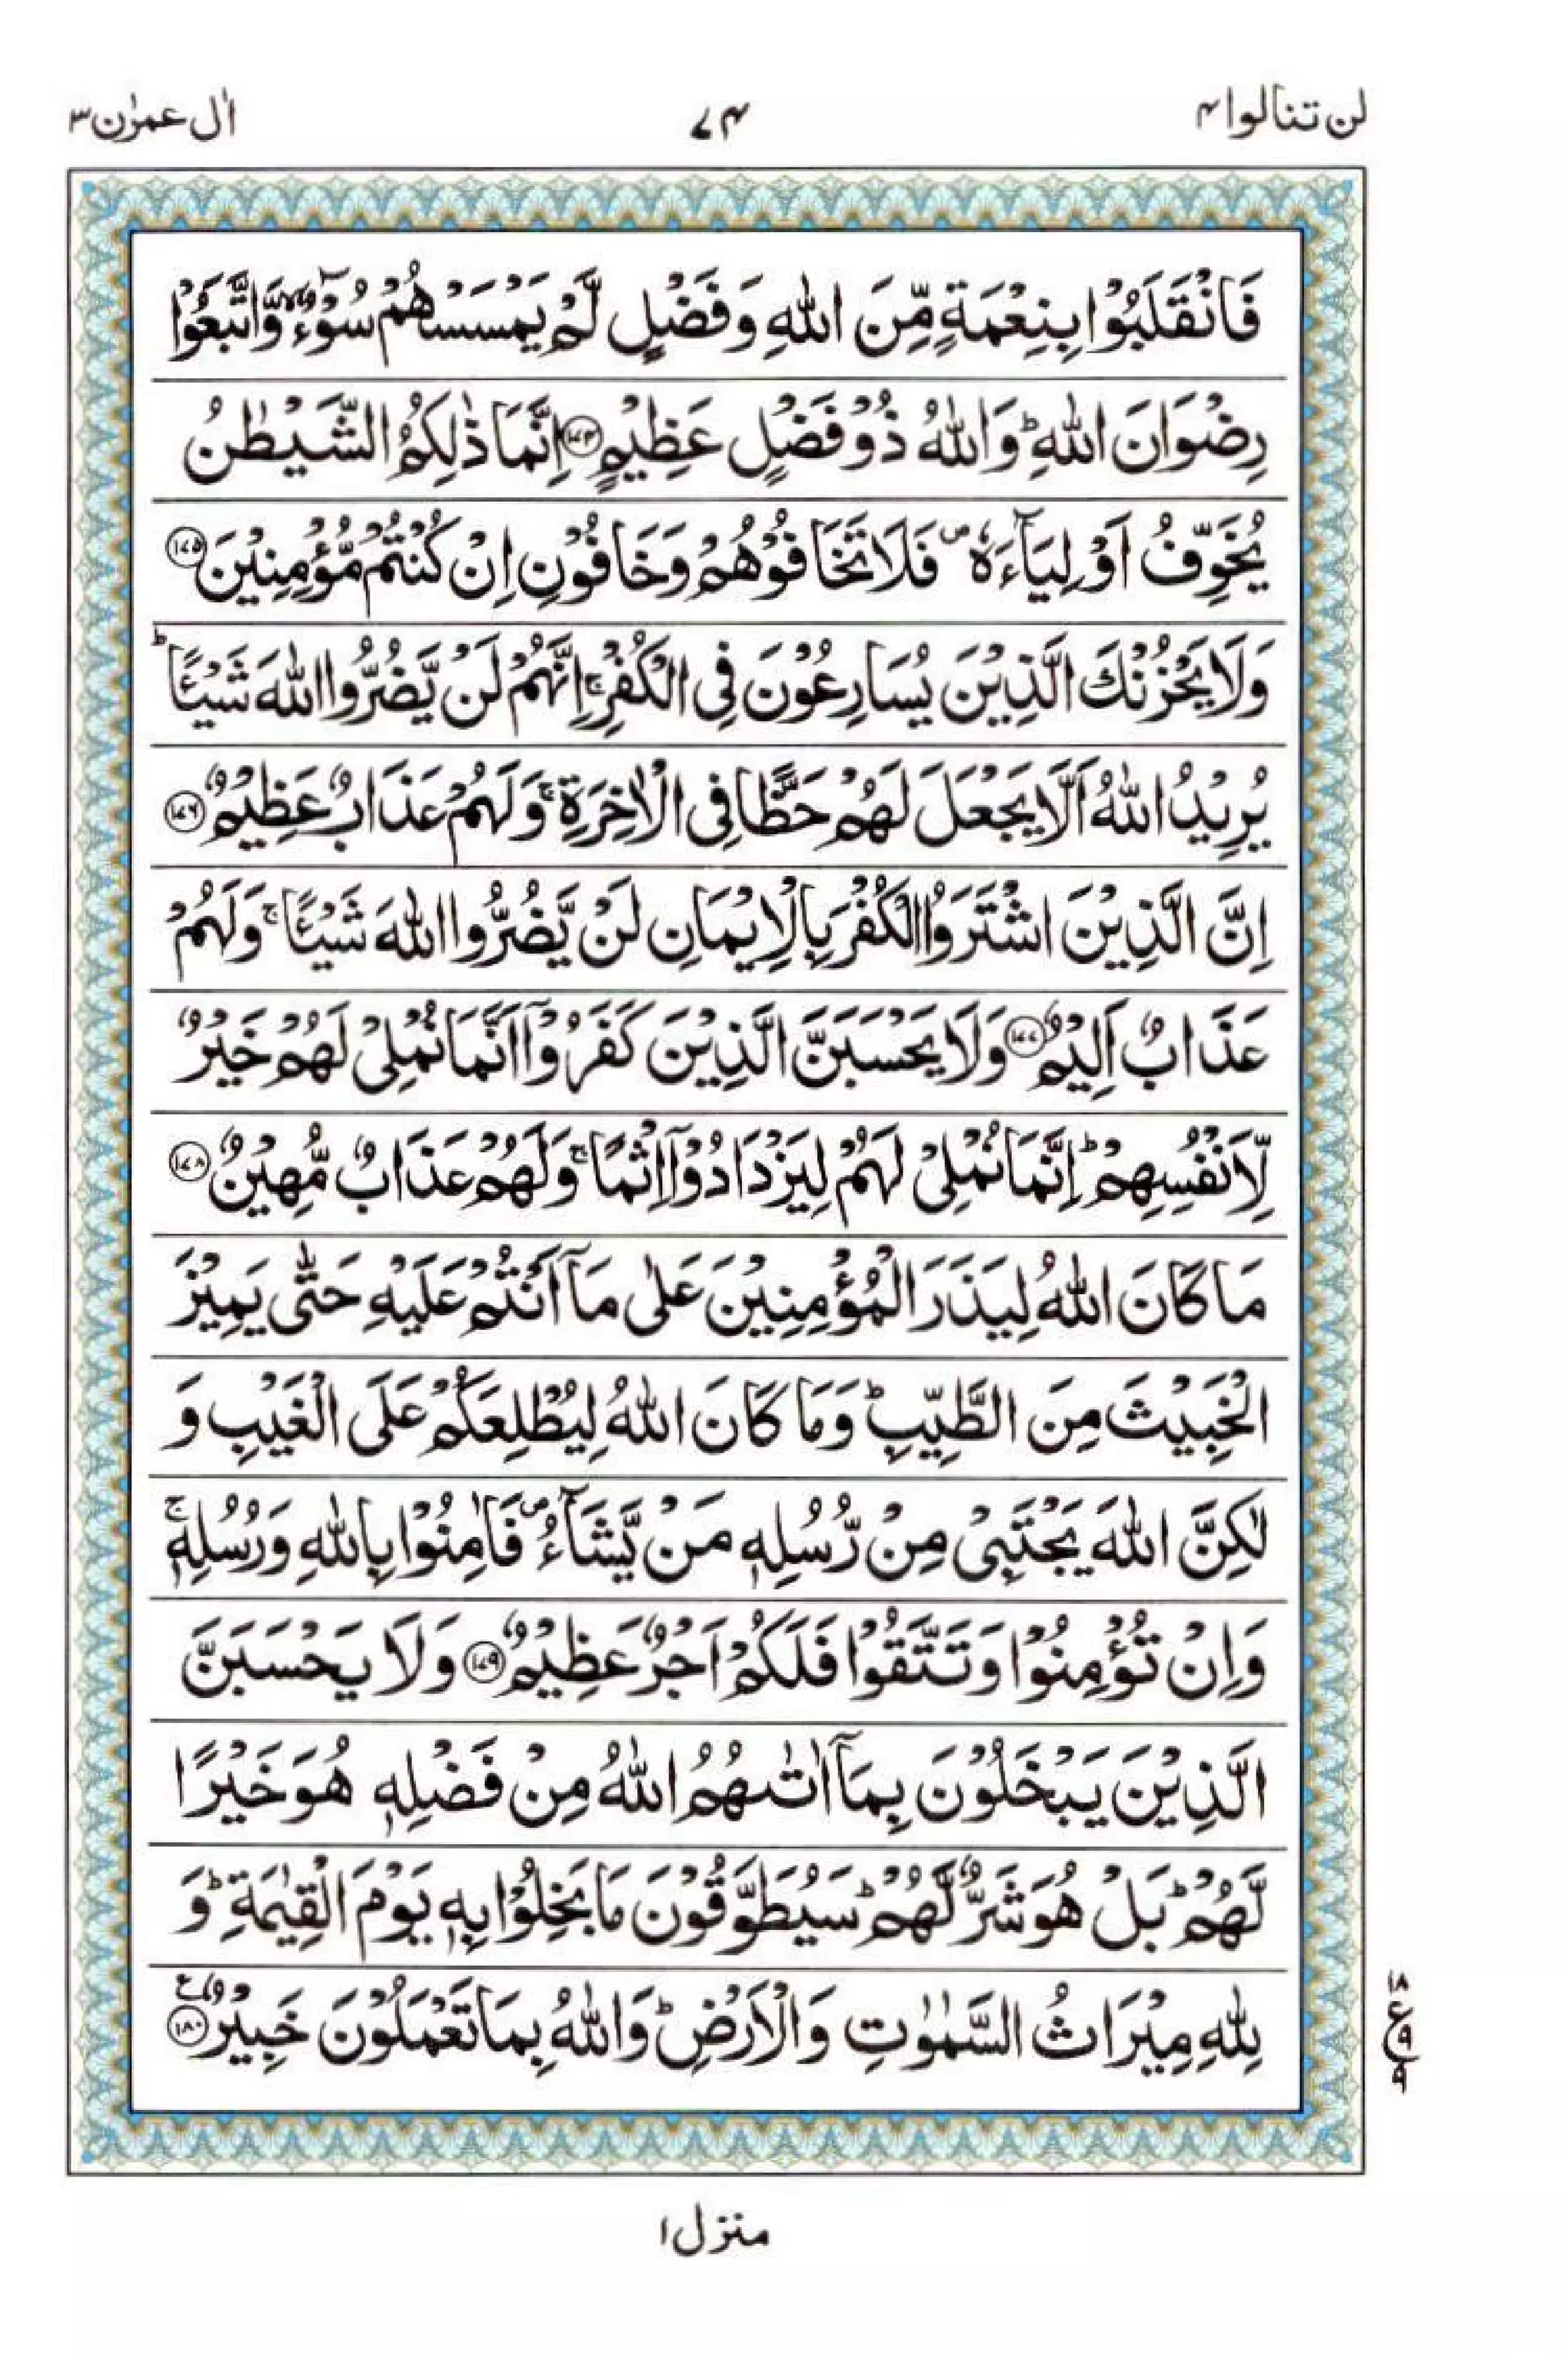 لن تنالوا ۴
۷۴
اٰل عمرٰن ۳
فَانْقَلَبُوْا بِنِعْمَةٍ مِّنَ اللّٰهِ وَفَضْلٍ لَّمْ يَمْسَسْهُمْ سُوْٓءٌ ۙ وَّاتَّبَعُوْا
رِضْوَانَ اللّٰهِ ؕ وَاللّٰهُ ذُوْ فَضْلٍ عَظِيْمٍ ﴿۱۷۴﴾ اِنَّمَا ذٰلِكُمُ الشَّيْطٰنُ
يُخَوِّفُ اَوْلِيَآءَهٗ ۪ فَلَا تَخَافُوْهُمْ وَخَافُوْنِ اِنْ كُنْتُمْ مُّؤْمِنِيْنَ ﴿۱۷۵﴾
وَلَا يَحْزُنْكَ الَّذِيْنَ يُسَارِعُوْنَ فِى الْكُفْرِ ۚ اِنَّهُمْ لَنْ يَّضُرُّوا اللّٰهَ شَيْـًٔا ؕ
يُرِيْدُ اللّٰهُ اَلَّا يَجْعَلَ لَهُمْ حَظًّا فِى الْاٰخِرَةِ ۚ وَلَهُمْ عَذَابٌ عَظِيْمٌ ﴿۱۷۶﴾
اِنَّ الَّذِيْنَ اشْتَرَوُا الْكُفْرَ بِالْاِيْمَانِ لَنْ يَّضُرُّوا اللّٰهَ شَيْـًٔا ۚ وَلَهُمْ
عَذَابٌ اَلِيْمٌ ﴿۱۷۷﴾ وَلَا يَحْسَبَنَّ الَّذِيْنَ كَفَرُوْٓا اَنَّمَا نُمْلِىْ لَهُمْ خَيْرٌ
لِّاَنْفُسِهِمْ ؕ اِنَّمَا نُمْلِىْ لَهُمْ لِيَزْدَادُوْٓا اِثْمًا ۚ وَلَهُمْ عَذَابٌ مُّهِيْنٌ ﴿۱۷۸﴾
مَا كَانَ اللّٰهُ لِيَذَرَ الْمُؤْمِنِيْنَ عَلٰى مَآ اَنْتُمْ عَلَيْهِ حَتّٰى يَمِيْزَ
الْخَبِيْثَ مِنَ الطَّيِّبِ ؕ وَمَا كَانَ اللّٰهُ لِيُطْلِعَكُمْ عَلَى الْغَيْبِ وَ
لٰكِنَّ اللّٰهَ يَجْتَبِىْ مِنْ رُّسُلِهٖ مَنْ يَّشَآءُ ۪ فَاٰمِنُوْا بِاللّٰهِ وَرُسُلِهٖ ۚ
وَاِنْ تُؤْمِنُوْا وَتَتَّقُوْا فَلَكُمْ اَجْرٌ عَظِيْمٌ ﴿۱۷۹﴾ وَلَا يَحْسَبَنَّ
الَّذِيْنَ يَبْخَلُوْنَ بِمَآ اٰتٰىهُمُ اللّٰهُ مِنْ فَضْلِهٖ هُوَ خَيْرًا
لَّهُمْ ؕ بَلْ هُوَ شَرٌّ لَّهُمْ ؕ سَيُطَوَّقُوْنَ مَا بَخِلُوْا بِهٖ يَوْمَ الْقِيٰمَةِ ؕ وَ
لِلّٰهِ مِيْرَاثُ السَّمٰوٰتِ وَالْاَرْضِ ؕ وَاللّٰهُ بِمَا تَعْمَلُوْنَ خَبِيْرٌ ﴿۱۸۰﴾ ع
۱۸
ع ۹
۹
منزل ۱